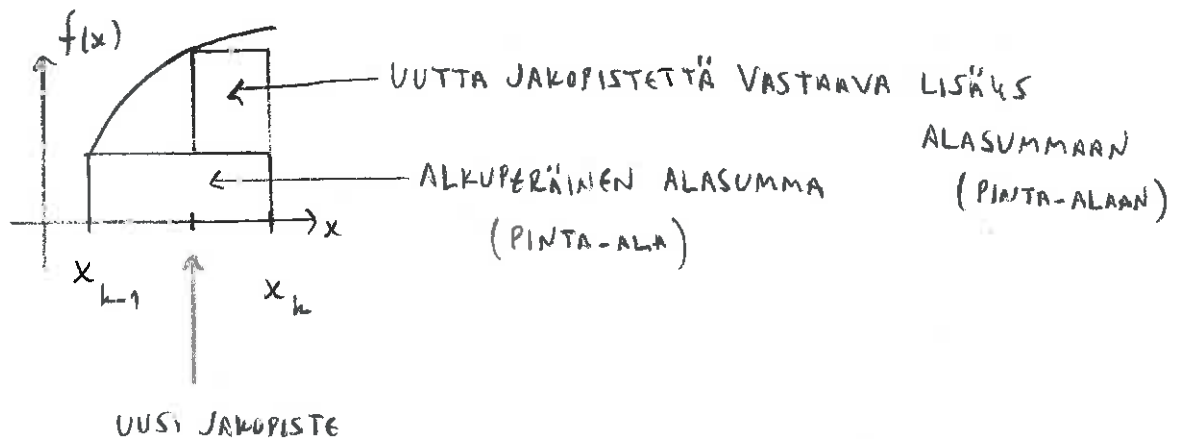 f(x)
UUTTA JAKOPISTETTÄ VASTAAVA LISÄYS
ALASUMMAAN
(PINTA-ALAAN)
ALKUPERÄINEN ALASUMMA
(PINTA-ALA)
x
x_{k-1}
x_k
UUSI JAKOPISTE